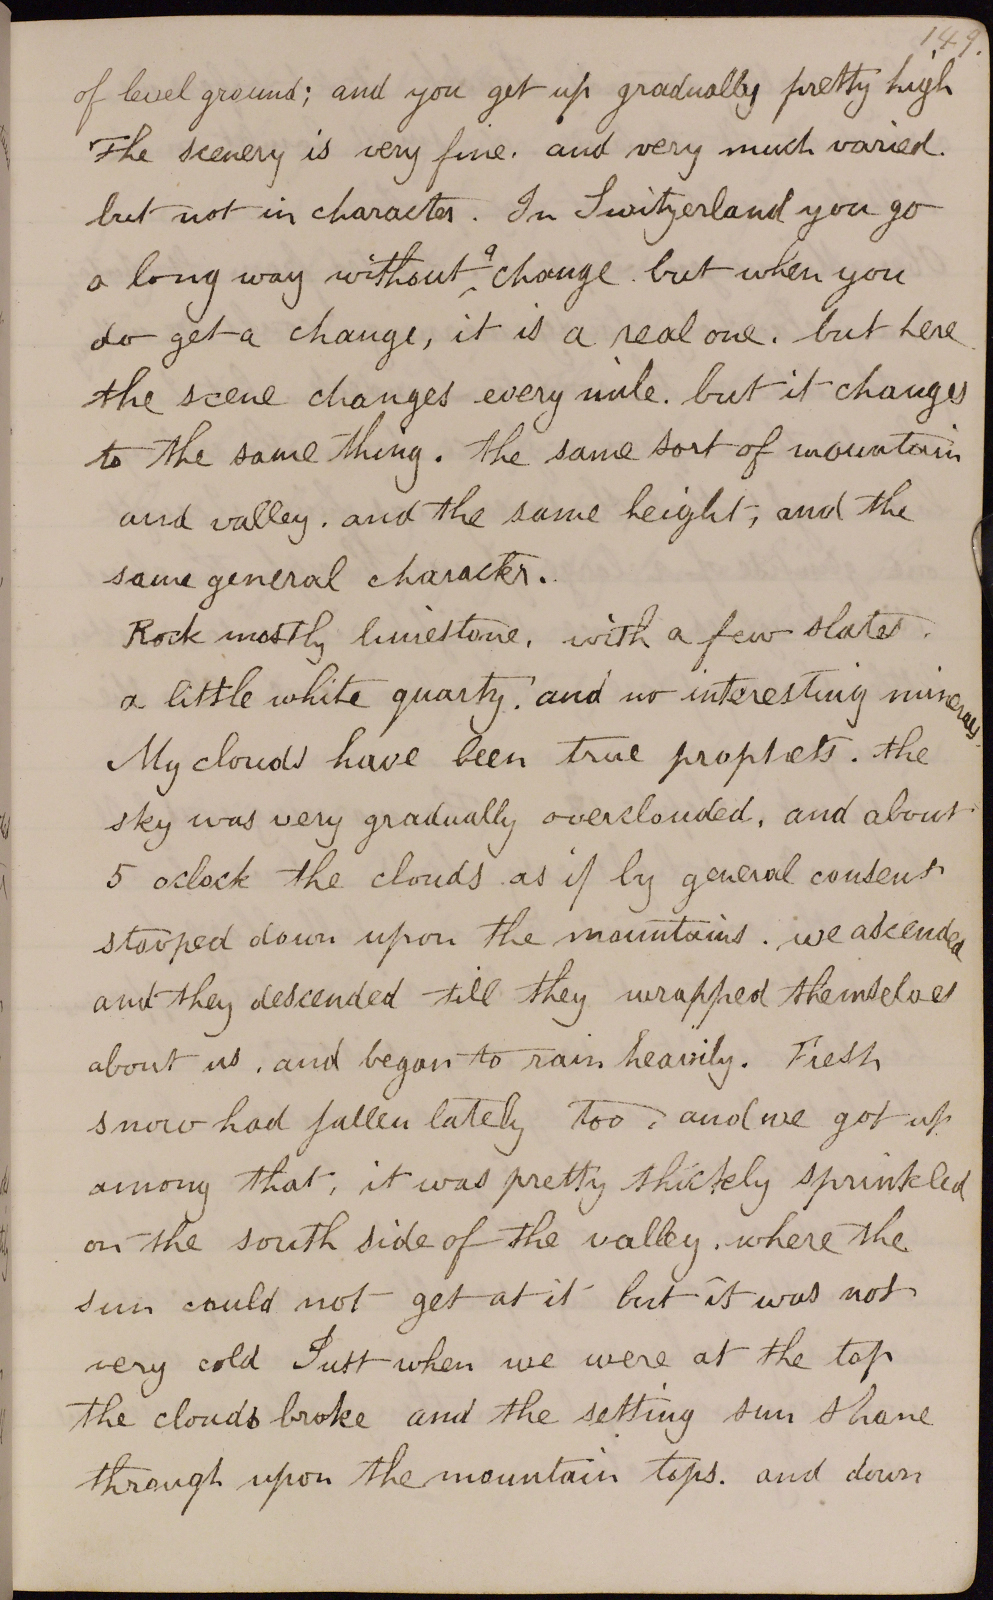 149.
of level ground; and you get up gradually pretty high
The scenery is very fine. and very much varied.
but not in character. In Switzerland you go
a long way without a change. but when you
do get a change, it is a real one. but here
the scene changes every mile. but it changes
to the same thing. the same sort of mountain
and valley. and the same height, and the
same general character.
Rock mostly limestone. with a few slates.
a little white quartz. and no interesting minerals.
My clouds have been true prophets. the
sky was very gradually overclouded, and about
5 oclock the clouds as if by general consent
stooped down upon the mountains. we ascended
and they descended till they wrapped themselves
about us. and began to rain heavily. Fresh
snow had fallen lately too, and we got up
among that, it was pretty thickly sprinkled
on the south side of the valley. where the
sun could not get at it but it was not
very cold Just when we were at the top
the clouds broke and the setting sun shone
through upon the mountain tops. and down